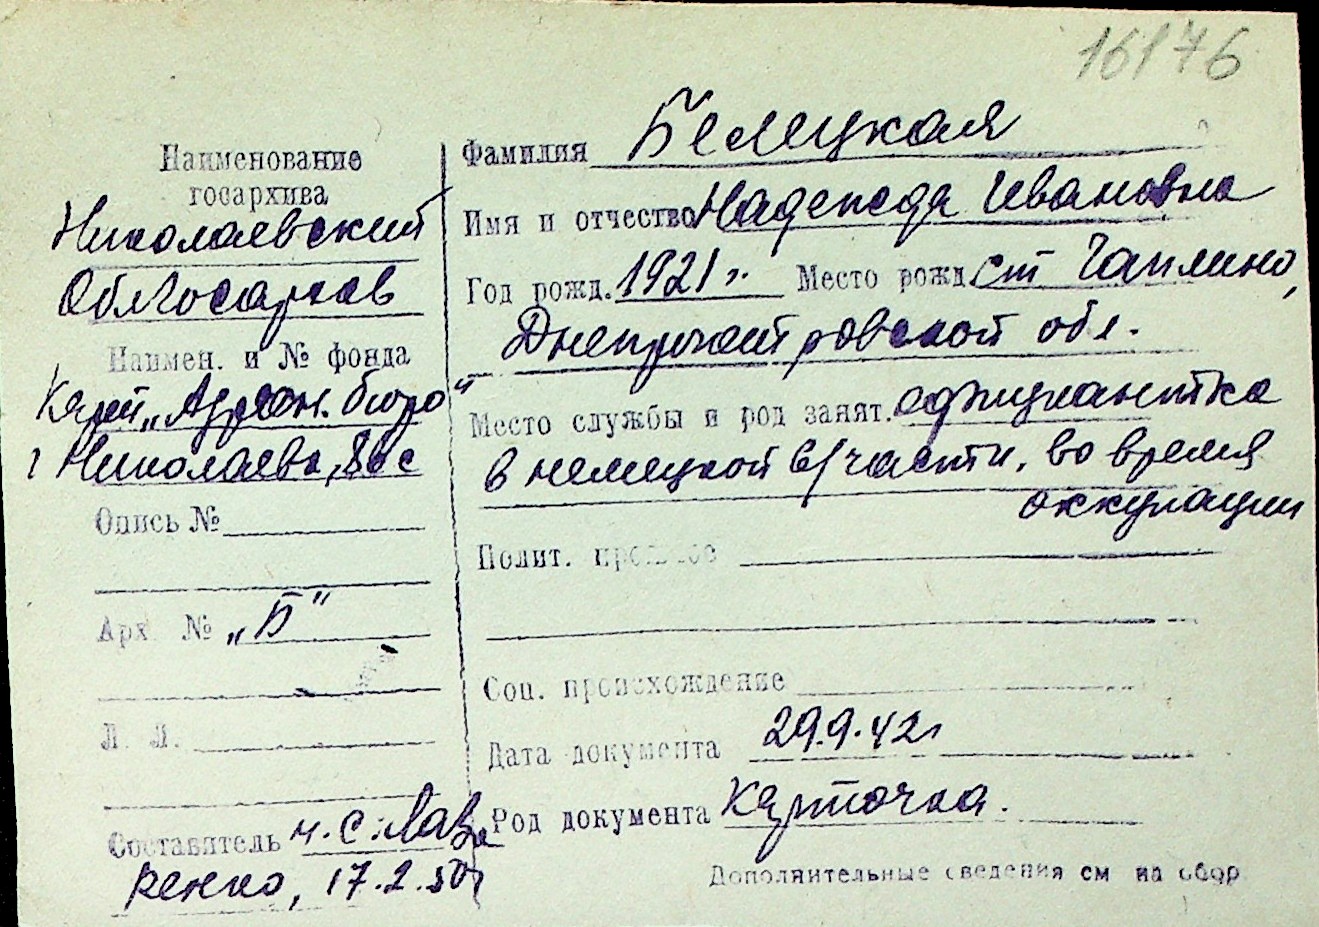 16176
Наименование
госархива
Николаевский
Облгосархив
Наимен. и № фонда
Карт „Адресн. бюро"
г Николаева,
Опись №
Арх №„Б"
Л. Л.
Составитель н. с. Лав
ренко, 17.2.50г
Фамилия Белецкая
Имя и отчество Надежда Ивановна
Год рожд. 1921 г. Место рожд. ст Чаплино,
Днепропетровской обл.
Место службы и род занят. официантка
в немецкой в/части, во время
оккупации
Полит. прошлое
Соц. происхождение
Дата документа 29.9.42г
Род документа Карточка.
Дополнительные сведения см на обор